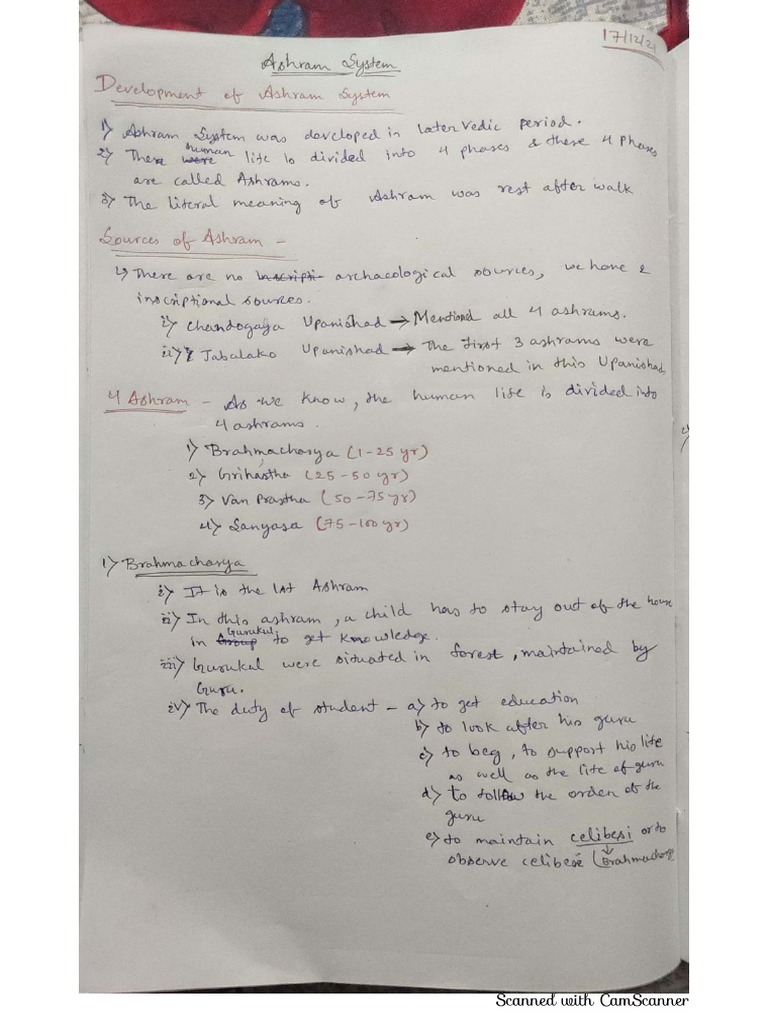 17/12/21
Ashram System
Development of Ashram System
1) Ashram System was developed in Later Vedic Period.
2) There human life is divided into 4 phases & these 4 phases
are called Ashrams.
3) The literal meaning of Ashram was rest after walk
Sources of Ashram -
↳ There are no inscripti archaeological sources, we have 2
inscriptional sources.
i) Chandogaya Upanishad → Mentiond all 4 ashrams.
ii) Jabalako Upanishad → The first 3 ashrams were
mentioned in this Upanishad,
4 Ashram - As we know, the human life is divided into
4 ashrams.
1) Brahmacharya (1-25 yr)
2) Grihastha (25-50 yr)
3) Van Prastha (50-75 yr)
4) Sanyasa (75-100 yr)
1) Brahmacharya
i) It is the 1st Ashram
ii) In this ashram, a child has to stay out of the house
in Group Gurukul to get knowledge.
iii) Gurukul were situated in forest, maintained by
Guru.
iv) The duty of student - a) to get education
b) to look after his guru
c) to beg, to support his life
as well as the life of guru
d) to follow the order of the
guru
e) to maintain celibesi or to
observe celibese (Brahmacharya
Scanned with CamScanner